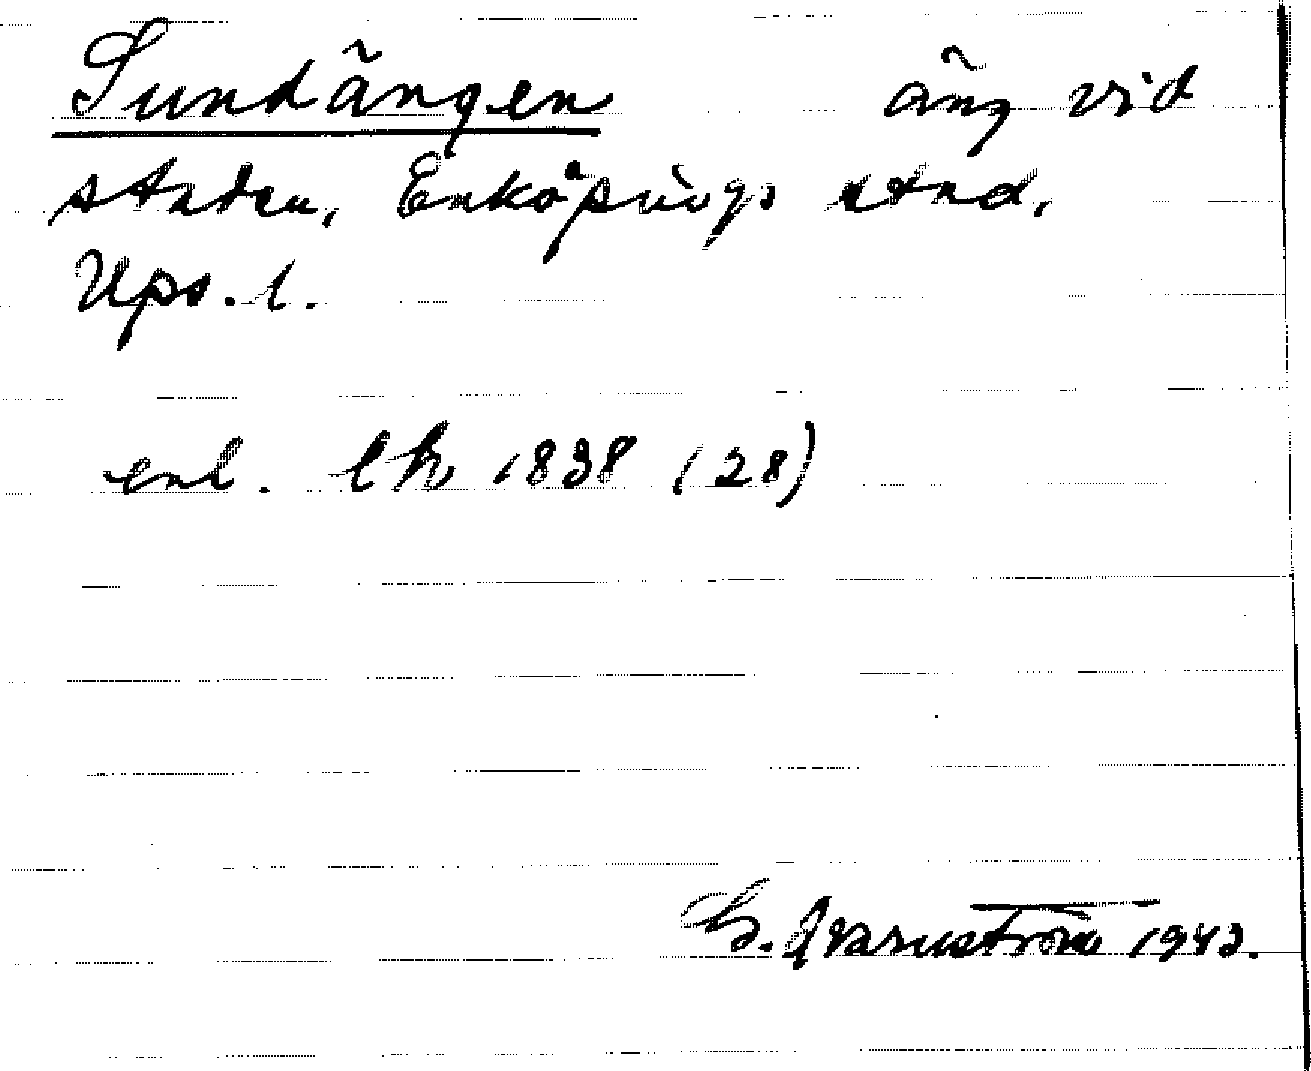 Sundängen äng vid
staden, Enköpings stad,
Ups. l.
enl. lk 1838 (28)
G. Qvarnström 1943.